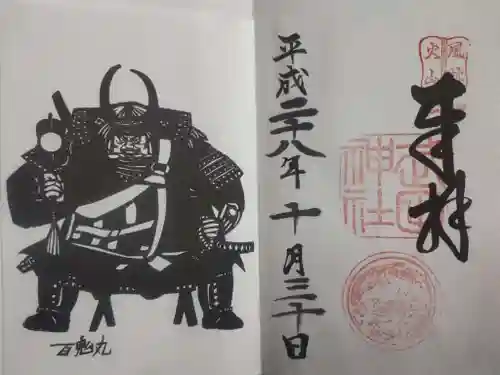 奉拝
風林
火山
武田
神社
平成二十八年十月三十日
百鬼丸